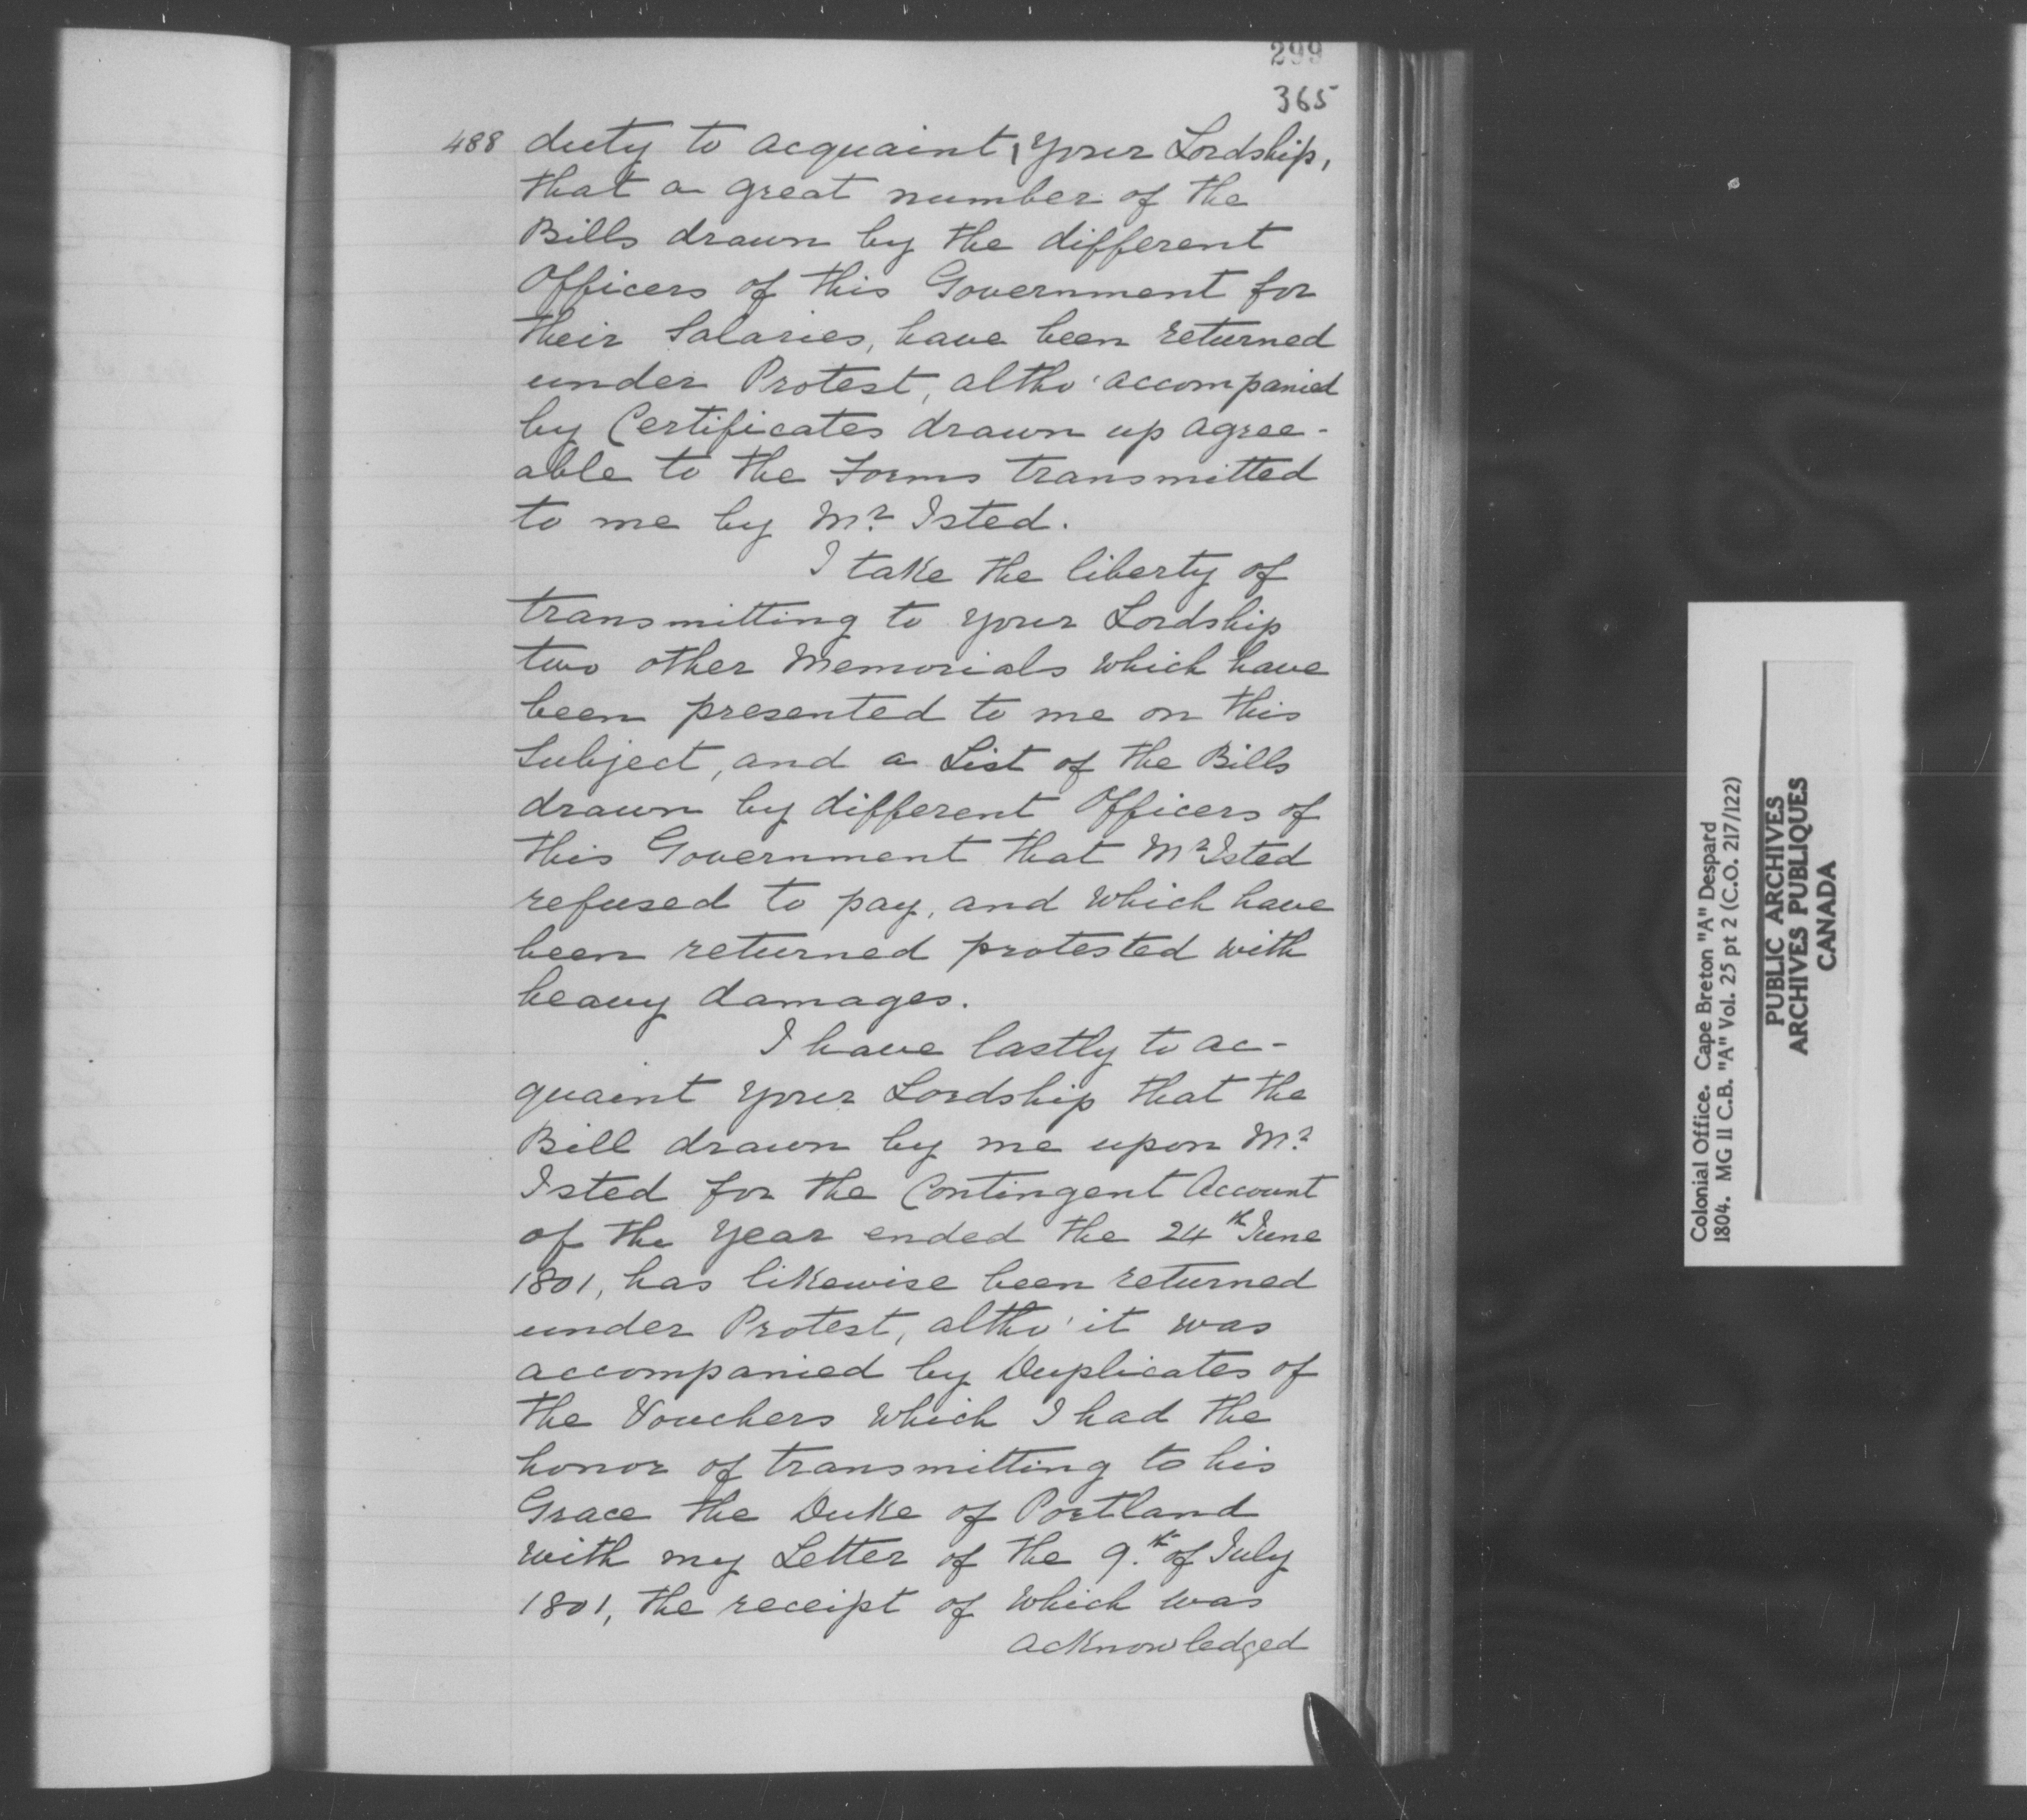 299
365
488 duty to acquaint, your Lordship,
that a great number of the
Bills drawn by the different
Officers of this Government for
their Salaries, have been returned
under Protest, altho' accompanied
by Certificates drawn up agree-
able to the Forms transmitted
to me by Mr. Isted.
I take the liberty of
transmitting to your Lordship
two other Memorials which have
been presented to me on this
Subject, and a List of the Bills
drawn by different Officers of
this Government that Mr Isted
refused to pay, and which have
been returned protested with
heavy damages.
I have lastly to ac-
quaint your Lordship that the
Bill drawn by me upon Mr.
Isted for the Contingent Account
of the year ended the 24th June
1801, has likewise been returned
under Protest, altho' it was
accompanied by Duplicates of
the Vouchers which I had the
honor of transmitting to his
Grace the Duke of Portland
with my Letter of the 9.th of July
1801, the receipt of which was
acknowledged
Colonial Office. Cape Breton "A" Despard
1804. MG 11 C.B. "A" Vol. 25 pt 2 (C.O. 217/122)
PUBLIC ARCHIVES
ARCHIVES PUBLIQUES
CANADA